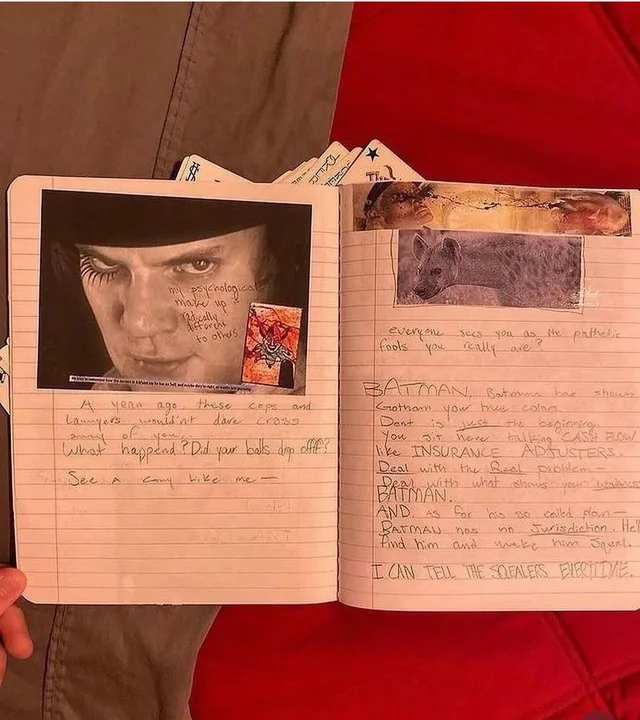 my psychological
make up is
radically
different
to others
A year ago, these cops and
Lawyers wouldn't dare cross
any of you,
What happend? Did your balls drop off?
See a Guy Like me —
everyone sees you as the pathetic
fools you really are?
BATMAN, Batman has shown
Gotham your true colors.
Dent is just the beginning.
You sit here talking CASH FLOW
like INSURANCE ADJUSTERS.
Deal with the Real problem —
Deal with what shows your weakness
BATMAN.
AND as for his so called plan —
BATMAN has no Jurisdiction. He'll
find him and make him Squeal.
I CAN TELL THE SQEALERS EVERTIME.